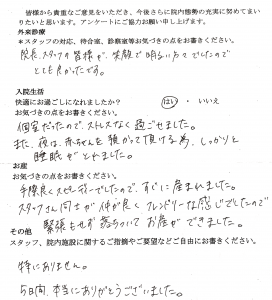 皆様から貴重なご意見をいただき、今後さらに院内態勢の充実に努めてまい
りたいと思います。アンケートにご協力お願い申し上げます。
外来診療
*スタッフの対応、待合室、診察室等お気づきの点をお書きください。
院長、スタッフの皆様が、笑顔で明るい方々でしたので
とても良かったです。
入院生活
快適にお過ごしになれましたか? はい ・ いいえ
お気づきの点をお書きください。
個室だったので、ストレスなく過ごせました。
また、夜は、赤ちゃんを預かって頂ける為、しっかりと
睡眠がとれました。
お産
お気づきの点をお書きください。
手際良くスピーディーでしたので、すぐに産まれました。
スタッフさん同士が仲が良くフレンドリーな感じでしたので
緊張もせず落ちついてお産ができました。
その他
スタッフ、院内施設に関するご指摘やご要望などご自由にお書きください。
特にありません。
5日間、本当にありがとうございました。